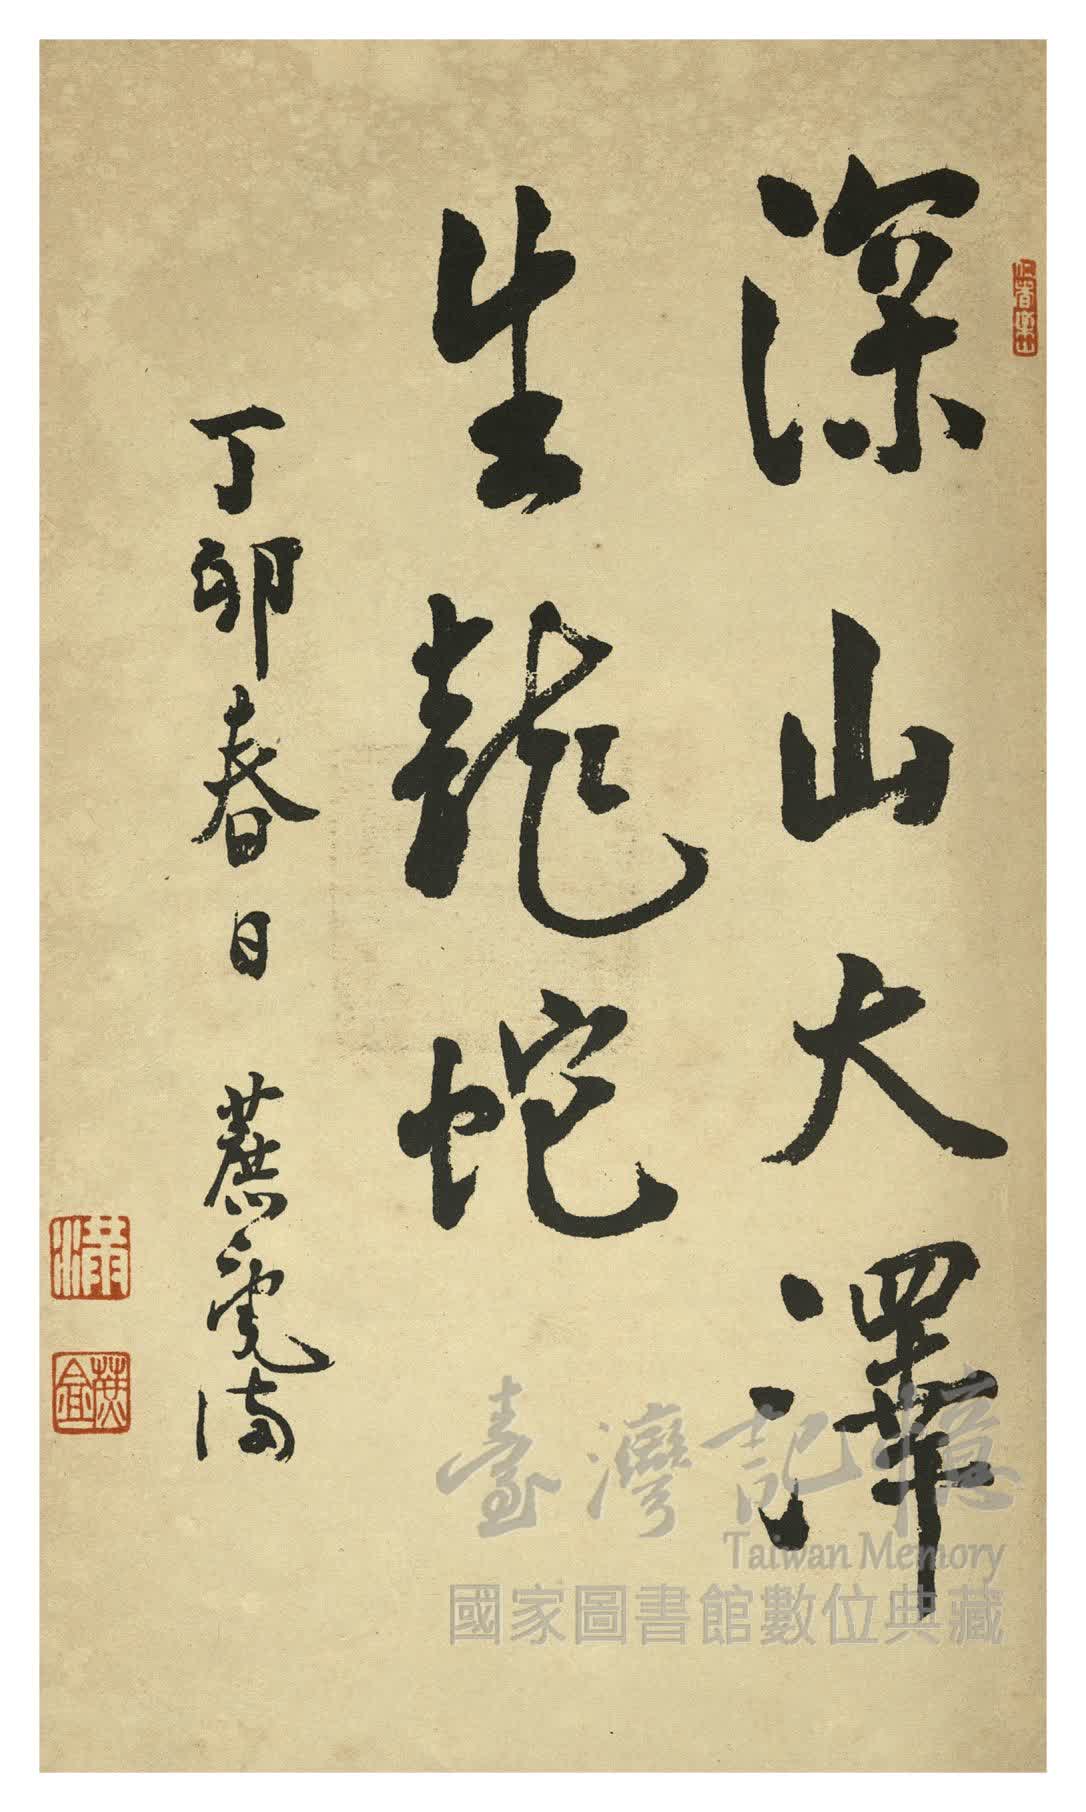 深山大澤
生龍蛇
丁卯春日 蔗庵滿
仁者樂山
臺灣記憶
Taiwan Memory
國家圖書館數位典藏